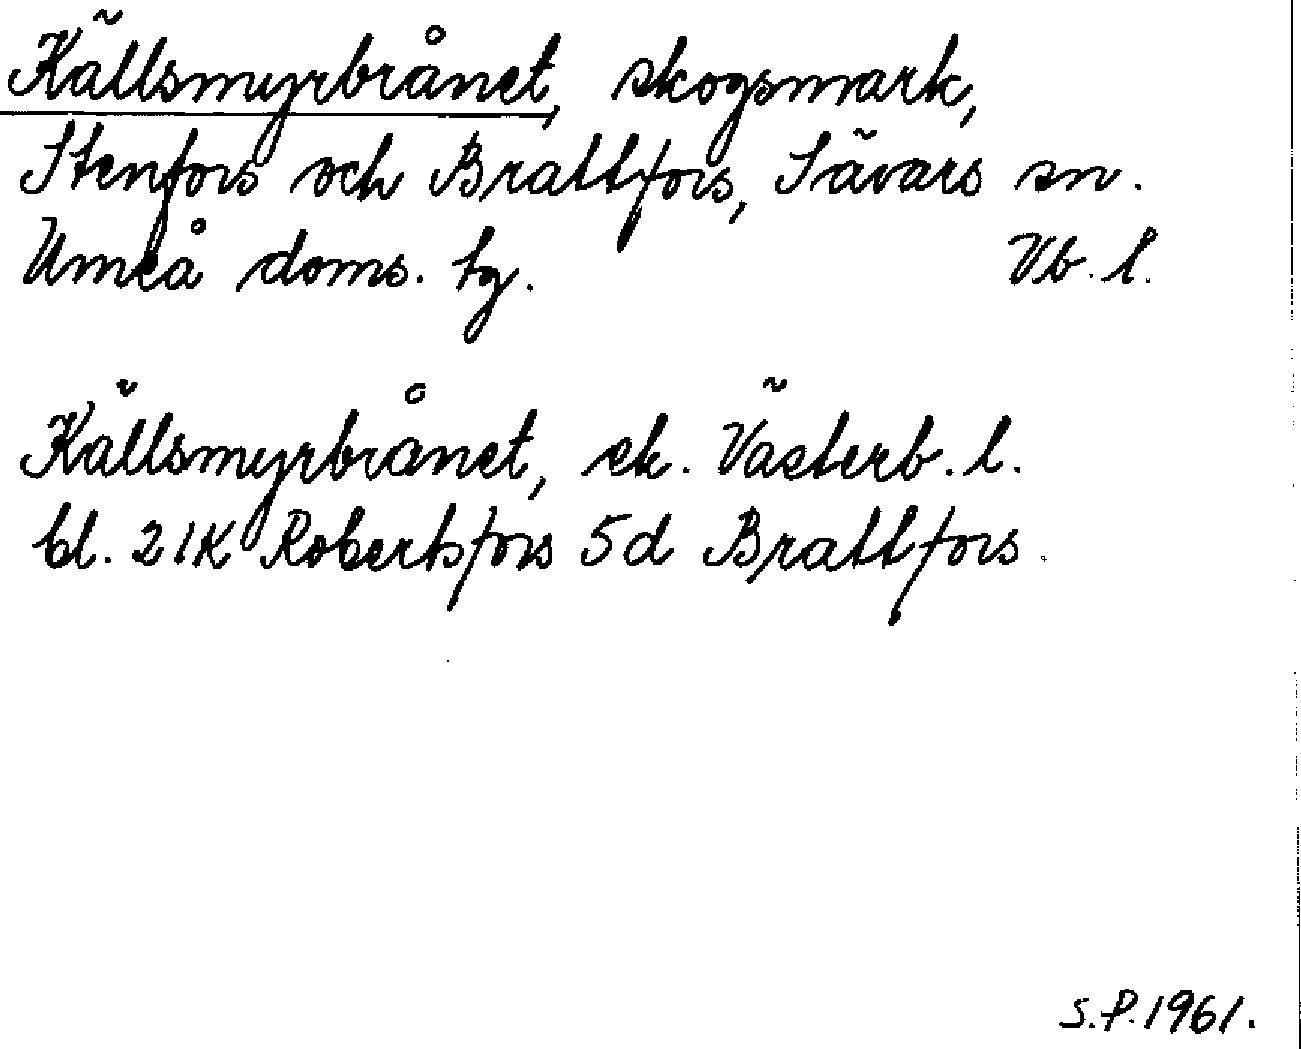 Källsmyrbrånet, skogsmark,
Stenfors och Brattfors, Sävars sn.
Umeå doms. tg. Vb. l.
Källsmyrbrånet, ek. Västerb. l.
bl. 21K Robertsfors 5d Brattfors.
S.P. 1961.